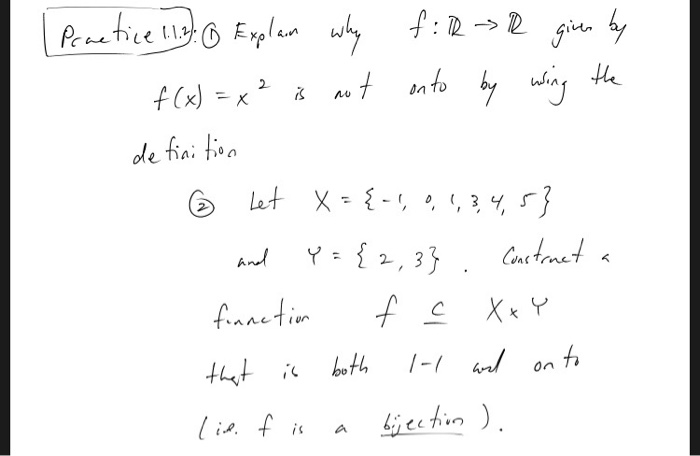 Practice 1.1.2: ① Explain why f: ℝ → ℝ given by
f(x) = x² is not onto by using the
definition
② Let X = {-1, 0, 1, 3, 4, 5}
and Y = {2, 3}. Construct a
function f ⊆ X × Y
that is both 1-1 and onto
(i.e. f is a bijection).